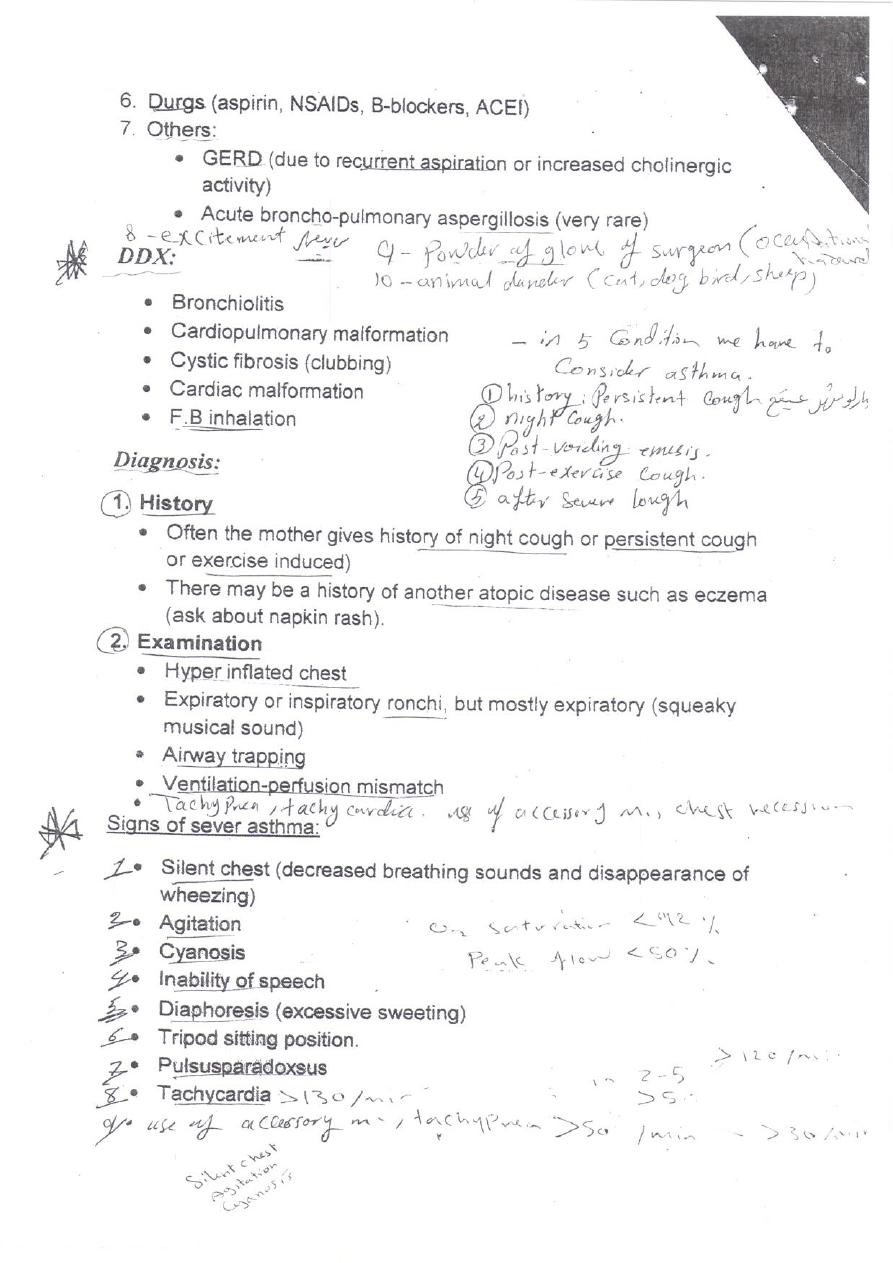 6. Durgs (aspirin, NSAIDs, B-blockers, ACEI)
7. Others:
• GERD (due to recurrent aspiration or increased cholinergic
activity)
• Acute broncho-pulmonary aspergillosis (very rare)
8 - excitement
9 - powder of glove of surgeon (
10 - animal dander (cat, dog bird, sheep)
DDX:
• Bronchiolitis
• Cardiopulmonary malformation
• Cystic fibrosis (clubbing)
• Cardiac malformation
• F.B inhalation
- in 5 Condition we have to
Consider asthma.
① history: Persistent cough
② night cough.
③ Post- emesis.
④ Post-exercise cough.
⑤ after severe
Diagnosis:
1. History
• Often the mother gives history of night cough or persistent cough
or exercise induced)
• There may be a history of another atopic disease such as eczema
(ask about napkin rash).
2. Examination
• Hyper inflated chest
• Expiratory or inspiratory ronchi, but mostly expiratory (squeaky
musical sound)
• Airway trapping
• Ventilation-perfusion mismatch
• Tachypnea, tachycardia. use of accessory m., chest recession
Signs of sever asthma:
1• Silent chest (decreased breathing sounds and disappearance of
wheezing)
2• Agitation
O2 saturation <92%
3• Cyanosis
Peak flow <50%
4• Inability of speech
5• Diaphoresis (excessive sweeting)
6• Tripod sitting position.
7• Pulsusparadoxsus
>120/min
in 2-5
8• Tachycardia >130/min
>5
9• use of accessory m., tachypnea >50 /min - >30/min
Silent chest
Agitation
Cyanosis